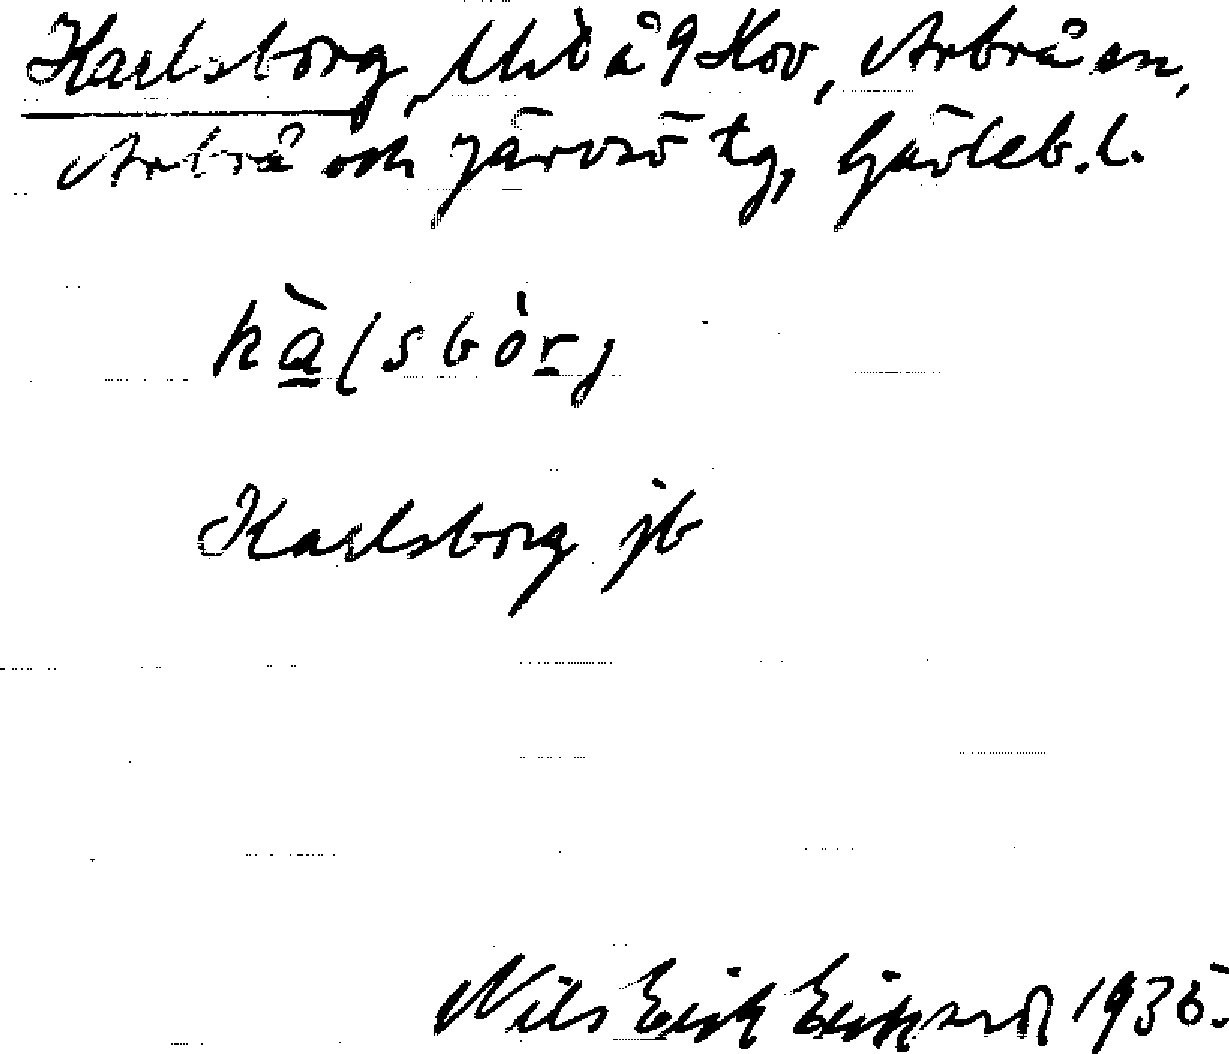 Karlsborg, Und å 9 Hov, Arbrå sn,
Arbrå och Järvsö tg, Gävleb. l.
kàlsbòrj
Karlsborg jb
Nils Erik Eriksson 1935.